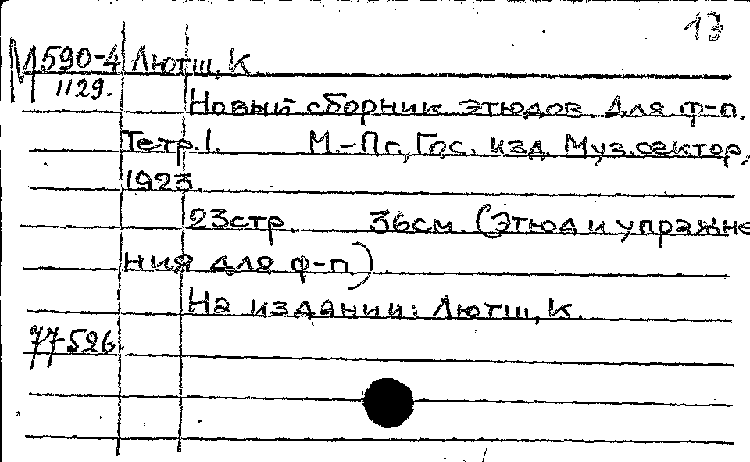 13
М 590-4 Лютш, К
1129.
Новый сборник этюдов для ф-п.
Тетр. 1. М.-Пг., Гос. изд. Муз. сектор,
1923.
23 стр. 36 см. (Этюд и упражне
ния для ф-п.)
На издании: Лютш, К.
77-526